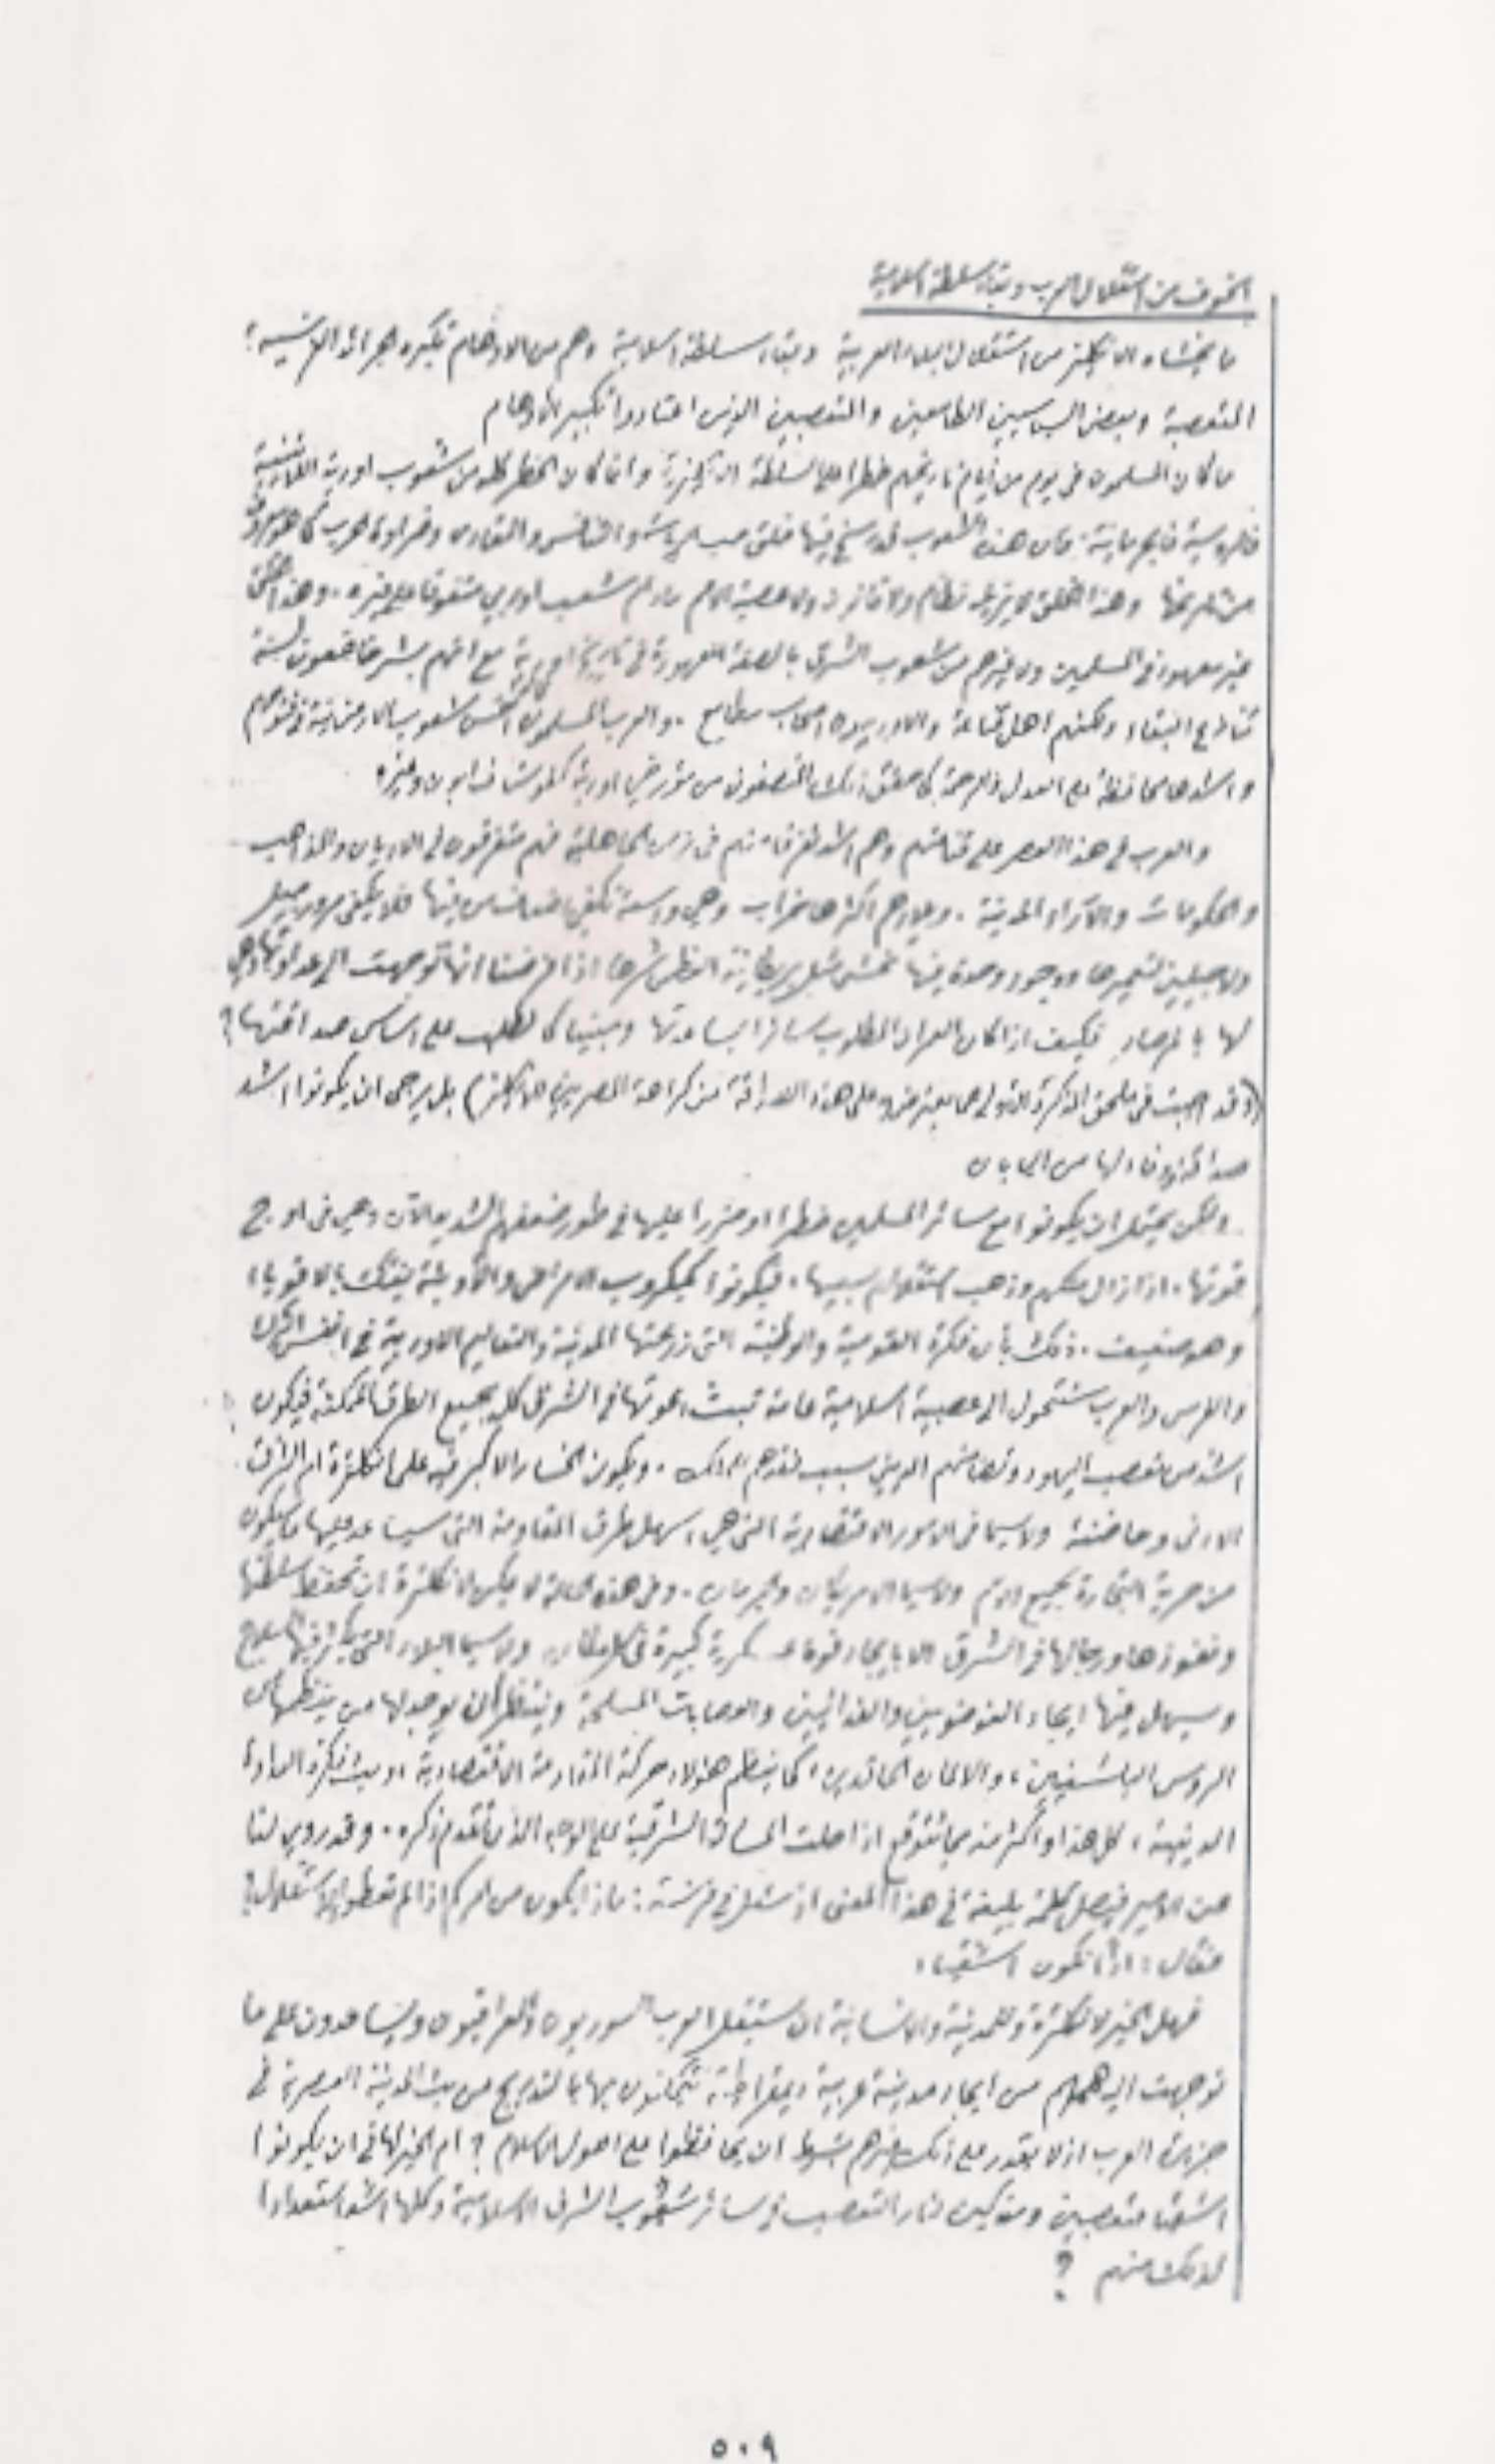 الخوف من استقلال العرب وبقاء سلطة اسلامية
ما يخشاه الانكليز من استقلال البلاد العربية وبقاء سلطة اسلامية وهم من الاوهام تكبره الجرائد الفرنسية
المتعصبة وبعض السياسيين الطامعين والمتعصبين الذين اعتادوا تكبير الاوهام
ما كان المسلمون في يوم من أيام تاريخهم خطرا على السلطة الانكليزية وانما كان الخطر كله من شعوب اوربة اللاتينية
فالروسية فالجرمانية. فان هذه الشعوب قد رسخ فيها خلق حب الرياسة والتنافس والتعادي وضراوة الحرب كما هو معروف
من تاريخها وهذا الخلق لا يزيله نظام ولا قانون ولا عصبة الامم ما دام شعب اوربي متفوقا على غيره. وهذا الخلق
غير معهود في المسلمين ولا غيرهم من شعوب الشرق بالصفة المعهودة في تاريخ اوربة مع انهم بشر خاضعون لسنة
تنازع البقاء ولكنهم اهل قناعة والاوربيون اصحاب مطامع. والعرب المسلمون شعوب الارض في فتوحهم
واشدها محافظة على العدل والرحمة كما حقق ذلك المنصفون من مؤرخي اوربة كغوستاف لوبون وغيره
والعرب في هذا العصر على قناعتهم وهم اشد تفرقا منهم في زمن الجاهلية فهم متفرقون في الاديان والمذاهب
والحكومات والآراء المدنية. وبلادهم اكثرها خراب وهي واسعة تكفي اضعاف من فيها فلا يكفي مرور جيل
ولا جيلين لتعميرها ووجود وحدة فيها تخشى مثل بريطانية العظمى شرها اذا فرضنا انها توجهت الى عداوتها وهي
لها بالمرصاد فكيف اذا كان العمران المطلوب سائرا بمساعدتها ومبنيا كما نطلب على اساس صداقتها؟
(وقد اجبت في ملحق المذكرة الاولى عما يعترض على هذه الصداقة من كراهة المصريين للانكليز) بل يرجى ان يكونوا اشد
صداقة ووفاء لها من اليابان
ولكن يحتمل ان يكونوا مع سائر المسلمين خطرا او ضررا عليها في طور ضعفهم الشديد الآن وهي في اوج
قوتها. اذا زال ملكهم وذهب استقلالهم بسببها. فيكونوا كميكروب الامراض والأوبئة يفتك بالاقوياء
وهو ضعيف. ذلك بأن فكرة القومية والوطنية التي زرعتها المدنية والتعاليم الاوربية في انفس الترك
والفرس والعرب ستتحول الى عصبية اسلامية عامة تبث دعوتها في الشرق كله بجميع الطرق الممكنة فيكون
اشد من تعصب اليهود وتضامنهم الديني سبب فقدهم الملك. ويكون الخسار الاكبر فيه على انكلترة ام الشرق
الادنى وحاضنته ولا سيما في الامور الاقتصادية التي هي اسهل طرق المقاومة التي سيساعد عليها ما سيكون
من حرية التجارة لجميع الامم ولا سيما الامريكان والجرمان. وفي هذه الحالة لا يمكن لانكلترة ان تحفظ سلطتها
ونفوذها ورجالها في الشرق الا بايجاد قوة عسكرية كبيرة في كل مكان ولا سيما البلاد التي يكثر فيها السلاح
ويسهل فيها ايجاد الفوضويين والفدائيين والعصابات المسلحة وينتظر أن يوجد لها من ينظمها من
الروس البلشفيين، والالمان الحاقدين، كما ينظم هؤلاء حركة المقاومة الاقتصادية، وبث فكرة العداوة
الدينية، كل هذا واكثر منه مما يتوقع اذا حلت المسألة الشرقية على الوجه الذي تقدم ذكره. وقد روي لنا
عن الامير فيصل كلمة بليغة في هذا المعنى اذ سئل في فرنسة: ماذا يكون من امركم اذا لم تعطوا الاستقلال؟
فقال: اذاً نكون اشقياء
فهل الخير لانكلترة وللمدنية والانسانية ان يستقل العرب السوريون والعراقيون ويساعدون على ما
توجهت اليه هممهم من ايجاد مدنية عربية ديمقراطية يتمكنون بها بالتدريج من بث المدنية العصرية في
جزيرة العرب اذ لا يقدر على ذلك غيرهم بشرط ان يحافظوا على اصول الاسلام؟ ام الخير لها في ان يكونوا
اشقياء متعصبين ومذكين لنار التعصب في سائر شعوب الشرق الاسلامية وكلها اشد استعدادا
لذلك منهم ؟
٥٠٩